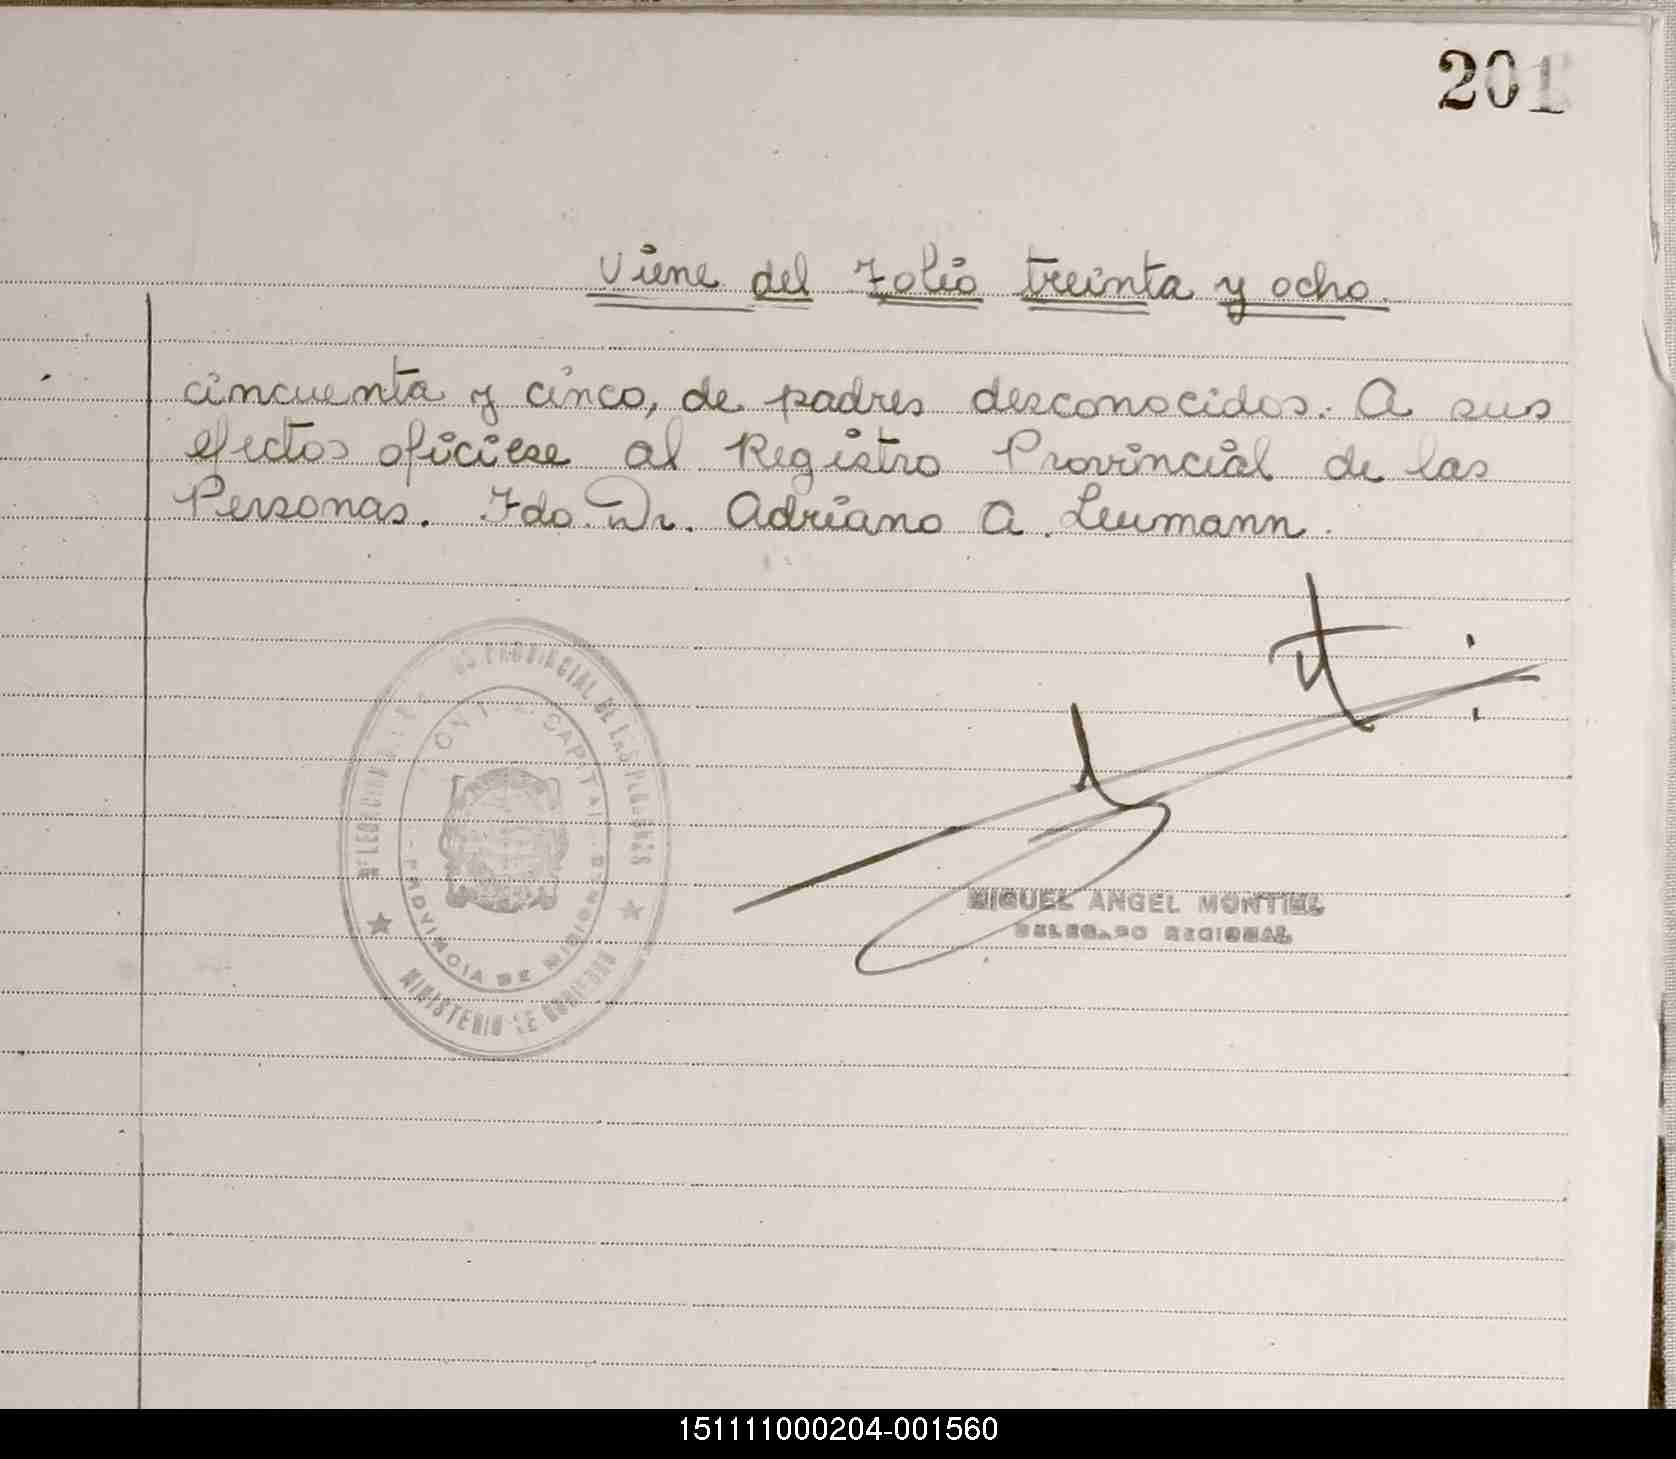 201
Viene del Folio treinta y ocho.
cincuenta y cinco, de padres desconocidos. A sus
efectos ofíciese al Registro Provincial de las
Personas. Fdo. Dr. Adriano A. Leumann.
PROVINCIAL DE LAS PERSONAS
CAPITAL
PROVINCIA DE MISIONES
MINISTERIO DE GOBIERNO
MIGUEL ANGEL MONTIEL
DELEGADO REGIONAL
151111000204-001560